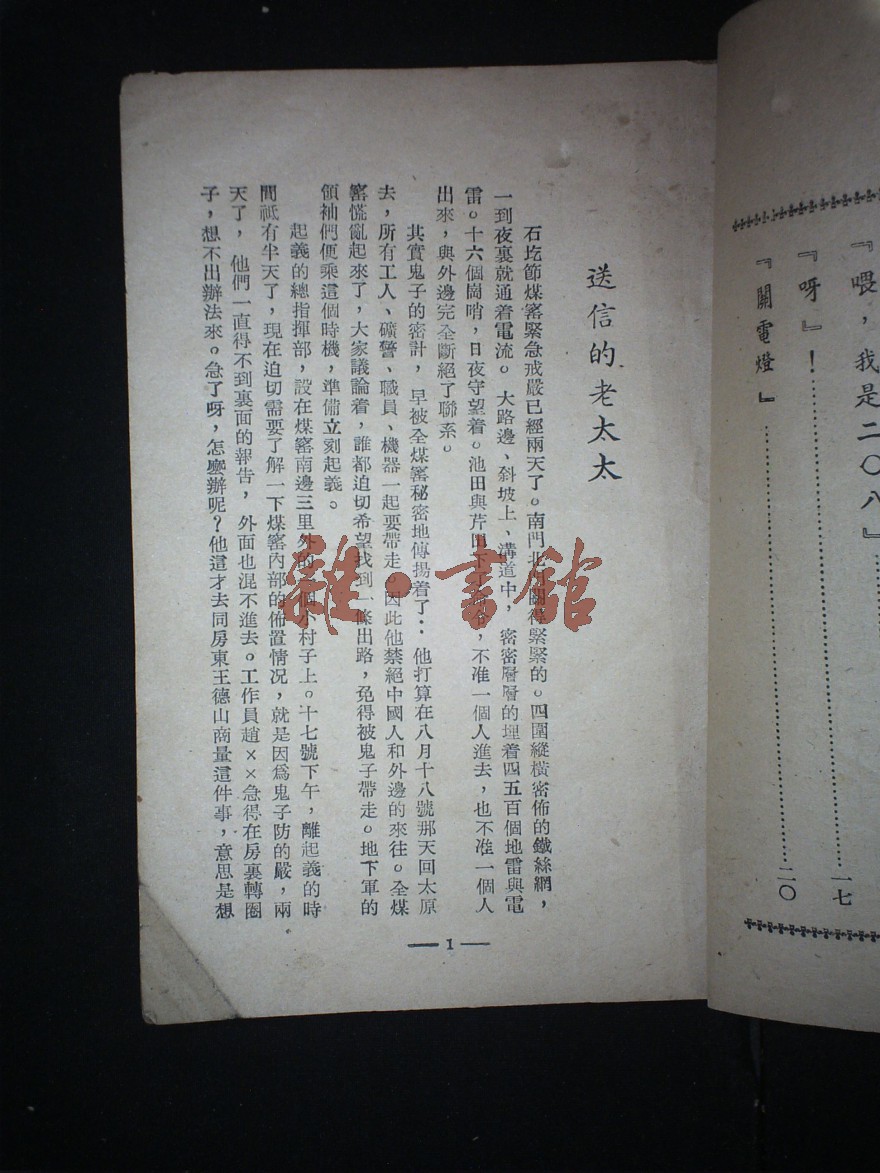 『喂，我是二〇八』
『呀』！……一七
『開電燈』……二〇
送信的老太太
石圪節煤窰緊急戒嚴已經兩天了。南門北門關得緊緊的。四圍縱橫密佈的鐵絲網，
一到夜裏就通着電流。大路邊、斜坡上，溝道中，密密層層的埋着四五百個地雷與電
雷。十六個崗哨，日夜守望着。池田與芹田下了命令，不准一個人進去，也不准一個人
出來，與外邊完全斷絕了聯系。
其實鬼子的密計，早被全煤窰秘密地傳揚着了：他打算在八月十八號那天回太原
去，所有工人、礦警、職員、機器一起要帶走。因此他禁絕中國人和外邊的來往。全煤
窰慌亂起來了，大家議論着，誰都迫切希望找到一條出路，免得被鬼子帶走。地下軍的
領袖們便乘這個時機，準備立刻起義。
起義的總指揮部，設在煤窰南邊三里外的一個小村子上。十七號下午，離起義的時
間祗有半天了，現在迫切需要了解一下煤窰內部的佈置情況，就是因爲鬼子防的嚴，兩
天了，他們一直得不到裏面的報告，外面也混不進去。工作員趙××急得在房裏轉圈
子，想不出辦法來。急了呀，怎麼辦呢？他這才去同房東王德山商量這件事，意思是想
— 1 —
雜·書館